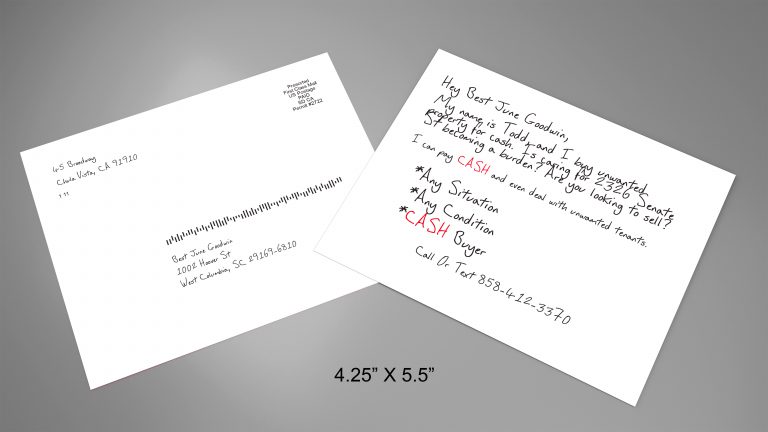 Presorted
First Class Mail
US Postage
PAID
SD CA
Permit #2722
45 Broadway
Chula Vista, CA 91910
Best June Goodwin
1002 Hoover St
West Columbia, SC 29169-6810
Hey Best June Goodwin,
My name is Todd, and I buy unwanted
property for cash. Is caring for 2326 Senate
St becoming a burden? Are you looking to sell?
I can pay CASH and even deal with unwanted tenants.
*Any Situation
*Any Condition
*CASH Buyer
Call Or Text 858-412-3370
4.25” X 5.5”